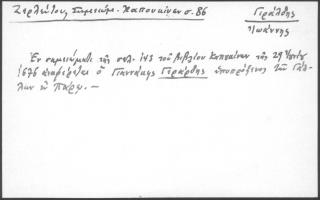 Ζερλέντου, Σημειώμ. Καπουκίνων σ. 86
Γιράλδης
Ἰωάννης
Ἐν σημειώματι τῆς σελ. 143 τοῦ βιβλίου Καπουκίνων τῆς 29
1676 ἀναφέρεται ὁ Γιαννάκης Γιράρδης ὑποπρόξενος τῶν Γάλ-
λων ἐν Πάρῳ. —